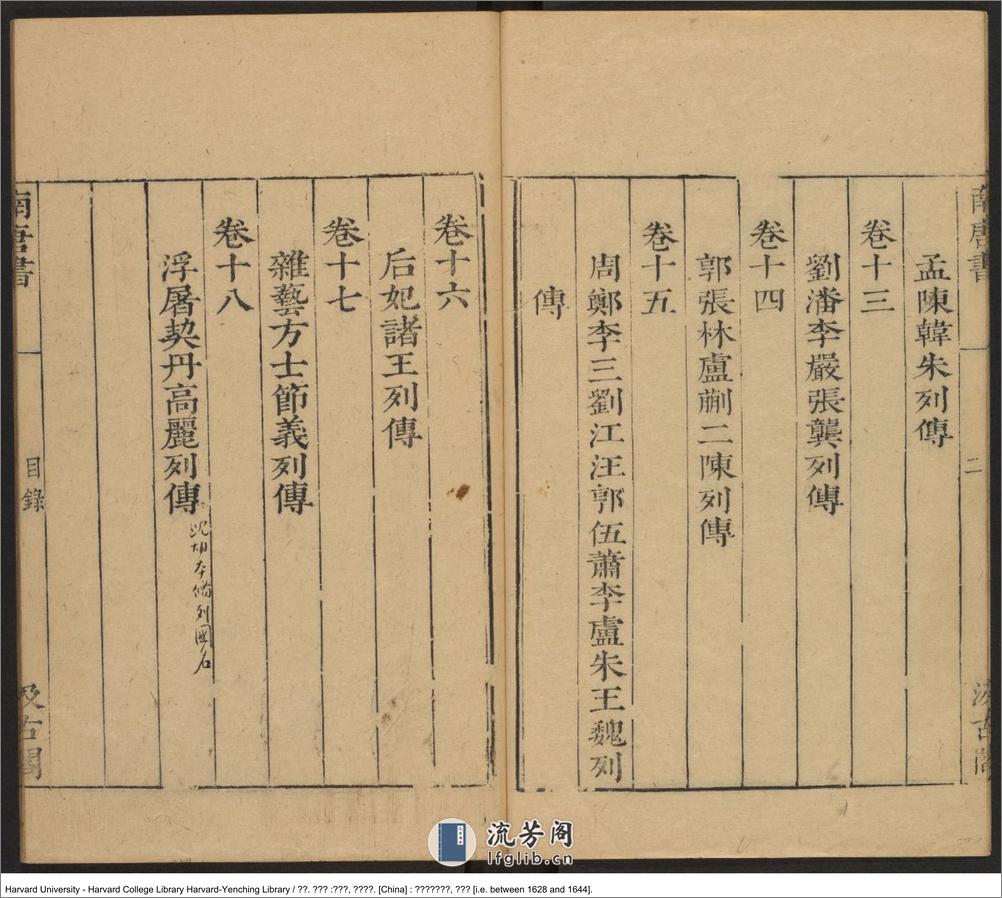 南唐書
二
汲古閣
孟陳韓朱列傳
卷十三
劉潘李嚴張龔列傳
卷十四
郭張林盧蒯二陳列傳
卷十五
周鄭李三劉江汪郭伍蕭李盧朱王魏列
傳
卷十六
后妃諸王列傳
卷十七
雜藝方士節義列傳
卷十八
浮屠契丹高麗列傳
本脩列國名
南唐書
目錄
汲古閣
流芳阁
lfglib.cn
Harvard University - Harvard College Library Harvard-Yenching Library / ??. ??? :???, ????. [China] : ???????, ??? [i.e. between 1628 and 1644].